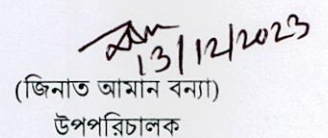 13/12/2023
(জিনাত আমান বন্যা)
উপপরিচালক